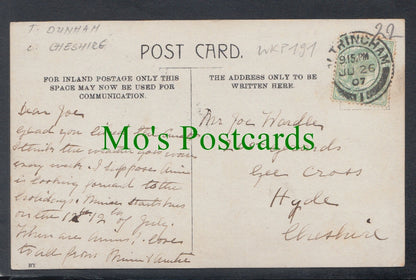 T. DUNHAM
C. CHESHIRE
POST CARD.
WKP191
22
ALTRINCHAM
9.15.PM
JU 26
07
FOR INLAND POSTAGE ONLY THIS
SPACE MAY NOW BE USED FOR
COMMUNICATION.
THE ADDRESS ONLY TO BE
WRITTEN HERE.
Dear Joe
Glad you
the weather
every week. I suppose
is looking forward to the
holidays. starts hers
on the 12th of July.
When are yours? love
to all from & Auntie
Mr Joe Wardle
Gee Cross
Hyde
Cheshire
Mo's Postcards